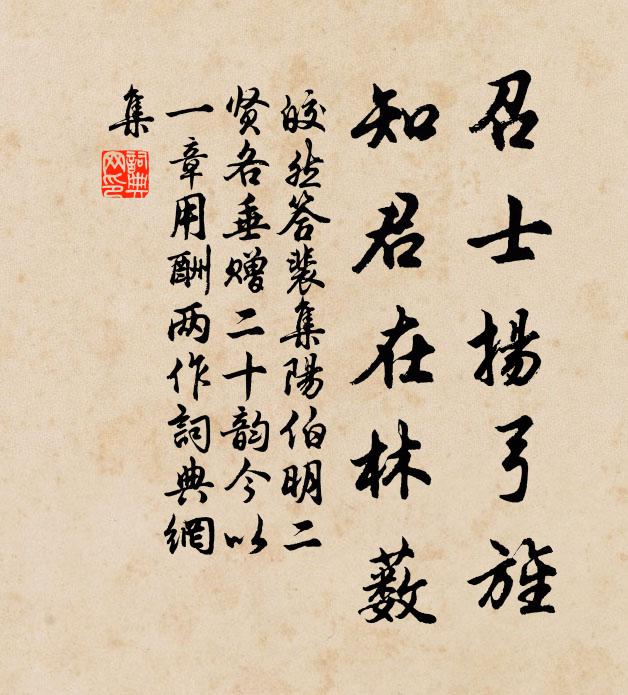 召士揚弓旌
知君在林薮
皎然答裴集陽伯明二
贤各垂赠二十韵今以
一章用酬两作詞典網
集
詞典网印